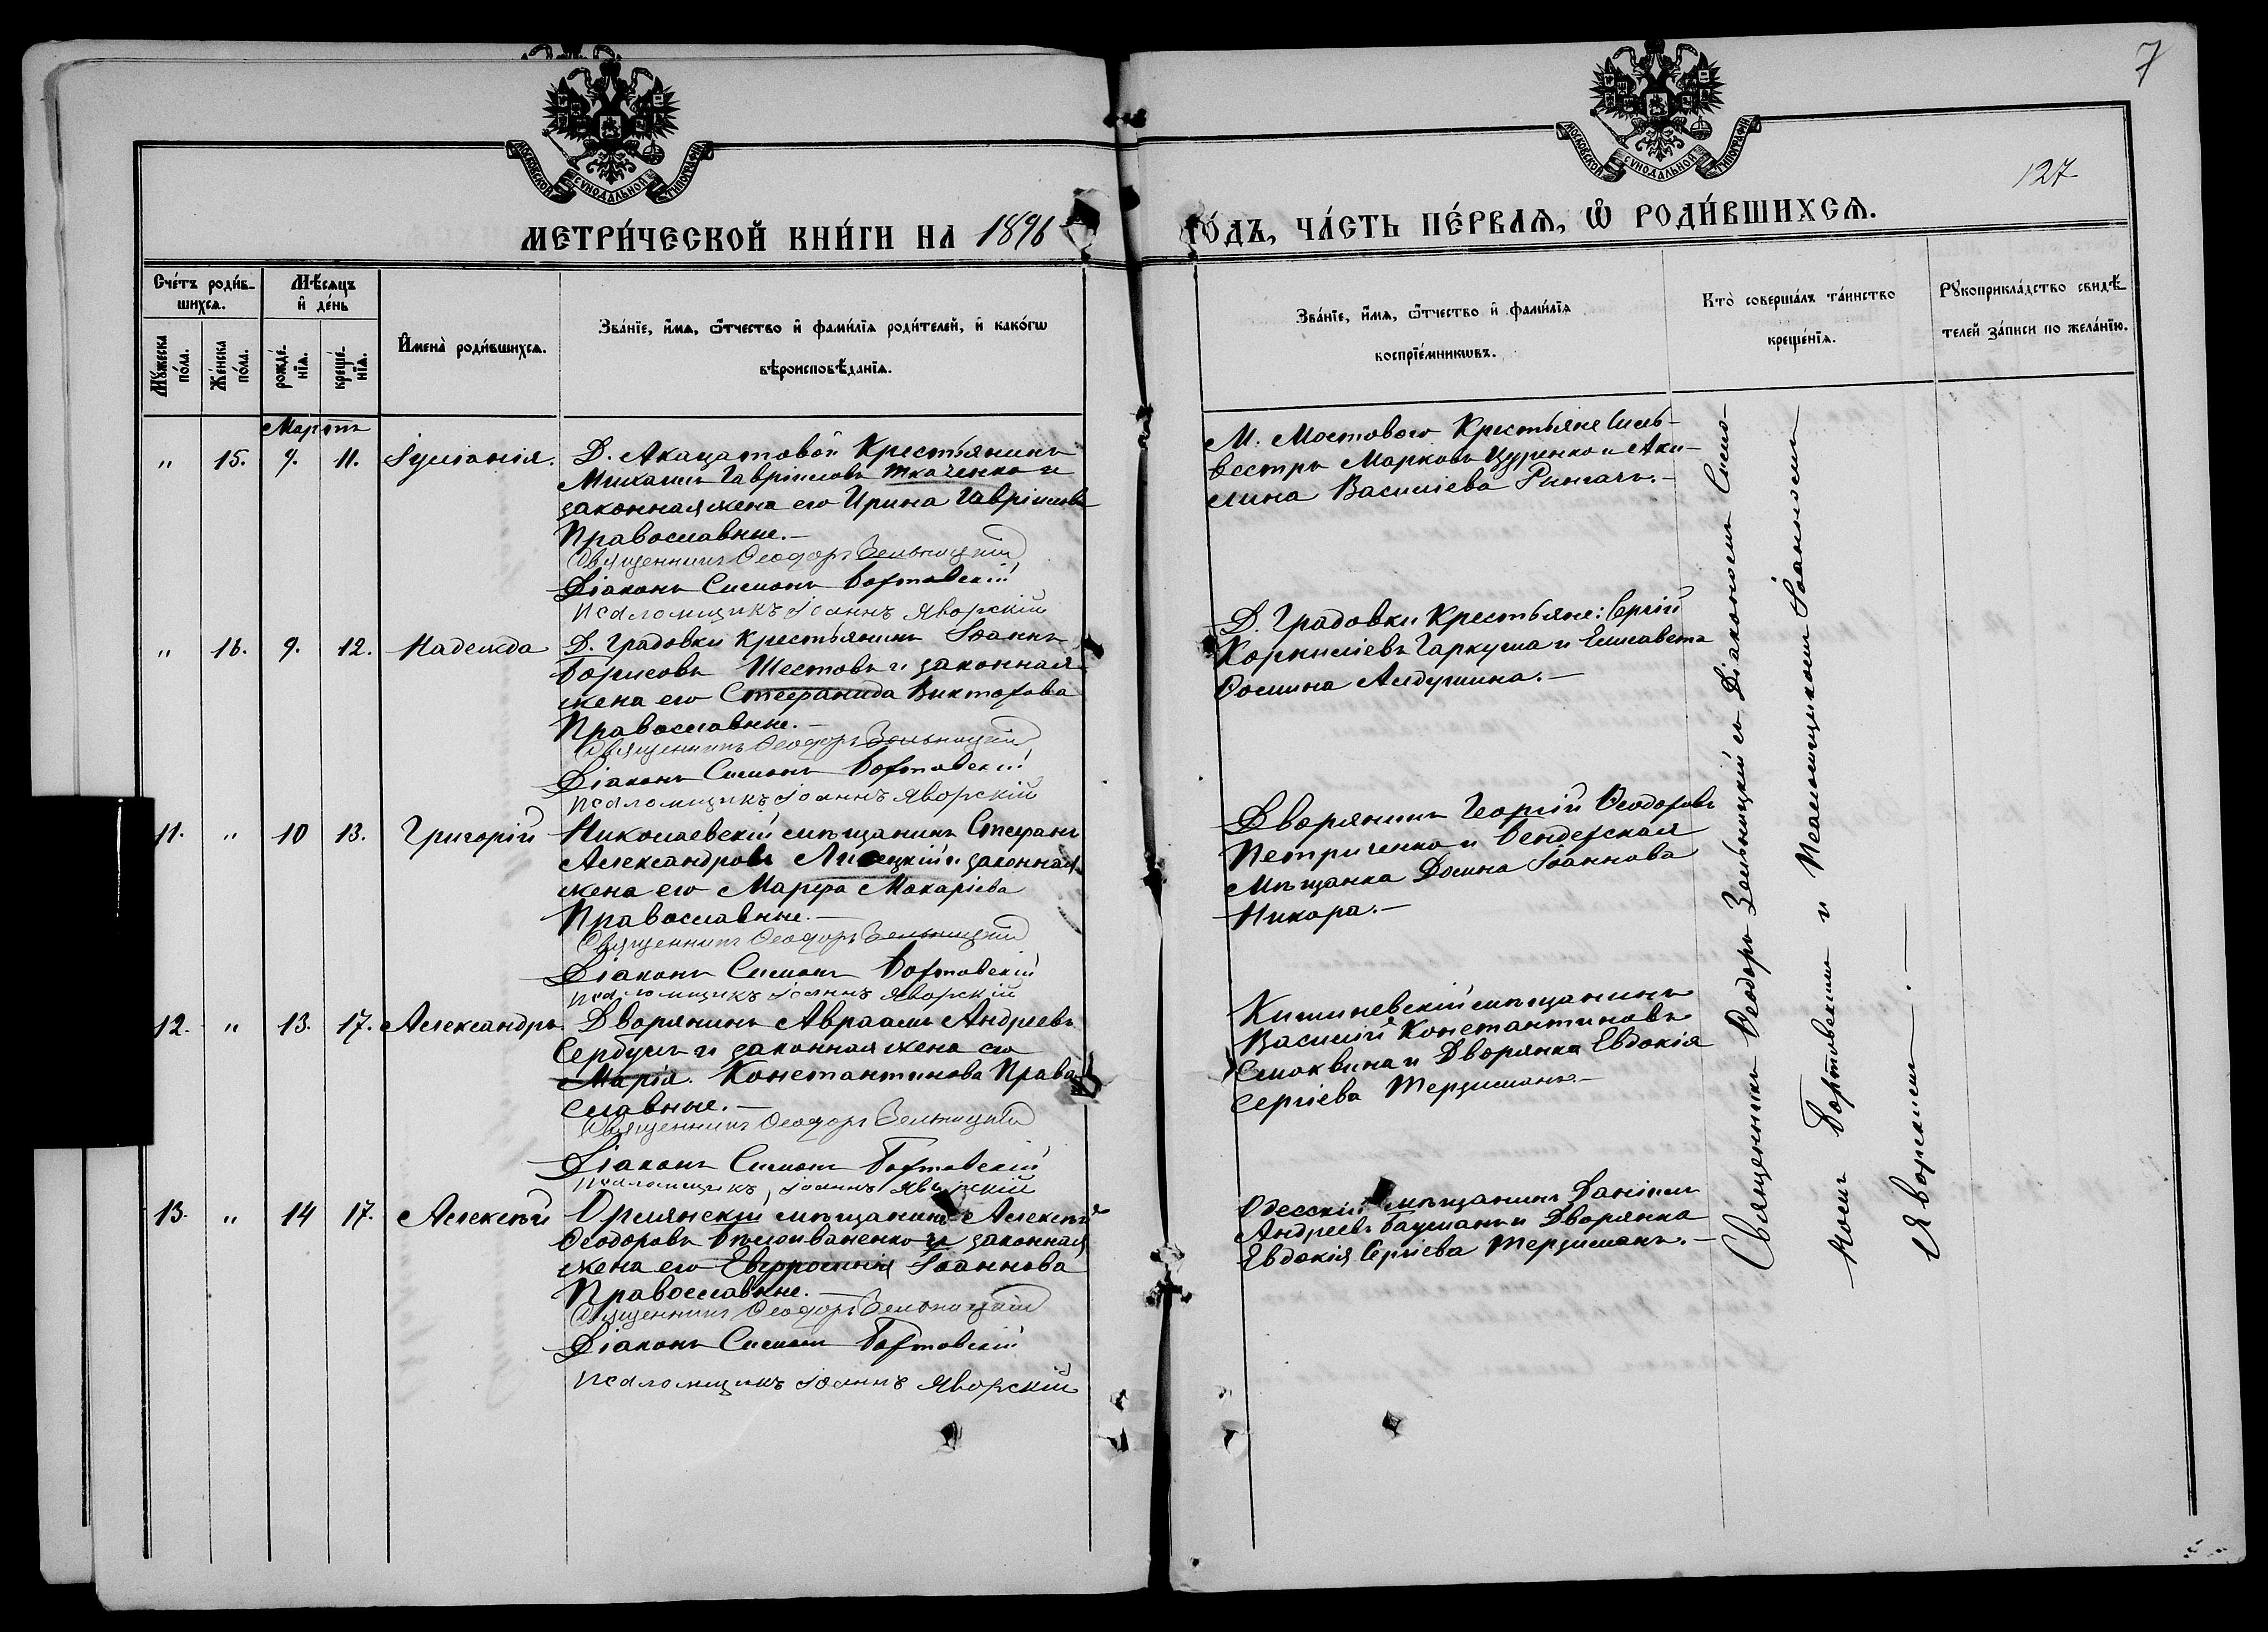 7
127
МОСКОВСКОЙ СУНОДАЛЬНОЙ ТИПОГРАФІИ
МОСКОВСКОЙ СУНОДАЛЬНОЙ ТИПОГРАФІИ
МЕТРИ́ЧЕСКОЙ КНИ́ГИ НА 1896
ГО́ДЪ, ЧА́СТЬ ПЕ́РВАЯ, Ѽ РОДИ́ВШИХСѦ.
Сче́тъ роди́в-
шихсѧ.
Мꙋ́жеска по́ла.
Же́нска по́ла.
Мѣ́сѧцъ
и҆ де́нь
рожде́-
нїѧ.
креще́-
нїѧ.
И҆мена̀ роди́вшихсѧ.
Зва́нїе, и҆́мѧ, ѻ҆́тчество и҆ фами́лїѧ роди́телей, и҆ како́гѡ
вѣроисповѣ́данїѧ.
Зва́нїе, и҆́мѧ, ѻ҆́тчество и҆ фами́лїѧ
воспрїе́мникѡвъ.
Кто̀ соверша́лъ та́инство
креще́нїѧ.
Рꙋкоприкла́дство свидѣ́-
телей за́писи по жела́нїю.
Мартъ
" 15. 9. 11. Іуліанія.
Д. Акацатовой Крестьянинъ
Михаилъ Гавріиловъ Ткаченко и
законная жена его Ирина Гавріилова
Православные.-
Священникъ Ѳеодоръ Зельницкій
Діаконъ Симонъ Бортовскій
Псаломщикъ Іоаннъ Яворскій
М. Мостового Крестьяне Силь-
вестръ Марковъ Цуренко и Аки-
лина Василіева Рынгачъ.-
" 16. 9. 12. Надежда
Д. Градовки Крестьянинъ Іоаннъ
Борисовъ Шестовъ и законная
жена его Стефанида Викторова
Православные.-
Священникъ Ѳеодоръ Зельницкій
Діаконъ Симонъ Бортовскій
Псаломщикъ Іоаннъ Яворскій
Д. Градовки Крестьяне: Сергій
Корниліевъ Гаркуша и Елисавета
Ѳомина Алдушина.-
11. " 10 13. Григорій
Николаевскій мѣщанинъ Стефанъ
Александровъ и законная
жена его Марфа Макаріева
Православные.-
Священникъ Ѳеодоръ Зельницкій
Діаконъ Симонъ Бортовскій
Псаломщикъ Іоаннъ Яворскій
Дворянинъ Георгій Ѳеодоровъ
Петриченко и Бендерская
Мѣщанка Домна Іоаннова
Никора.-
12. " 13. 17. Александръ
Дворянинъ Авраамъ Андреевъ
Сербулъ и законная жена его
Марія Константинова Право-
славные.-
Священникъ Ѳеодоръ Зельницкій
Діаконъ Симонъ Бортовскій
Псаломщикъ Іоаннъ Яворскій
Кишиневскій мѣщанинъ
Василій Константиновъ
Смоквина и Дворянка Евдокія
Сергіева Терзиманъ.-
13. " 14 17. Алексѣй
мѣщанинъ Алексѣй
Ѳеодоровъ Бѣлоиваненко и законная
жена его Евфросинія Іоаннова
Православные.-
Священникъ Ѳеодоръ Зельницкій
Діаконъ Симонъ Бортовскій
Псаломщикъ Іоаннъ Яворскій
Одесскій мѣщанинъ Даніилъ
Андреевъ Бауманъ и Дворянка
Евдокія Сергіева Терзиманъ.-
Священникъ Ѳеодоръ Зельницкій съ Діакономъ Симо-
номъ Бортовскимъ и Псаломщикомъ Іоанномъ
Яворскимъ.-